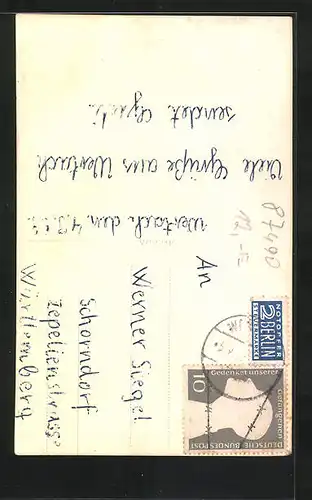 Wertach den
Viele Grüße aus Wertach
sendet
87490
12,-
An
Werner Siegel
Schorndorf
Zepelienstrasse
Württemberg
NOTOPFER
2 BERLIN
STEUERMARKE
Gedenket unserer
Gefangenen
10
DEUTSCHE BUNDESPOST